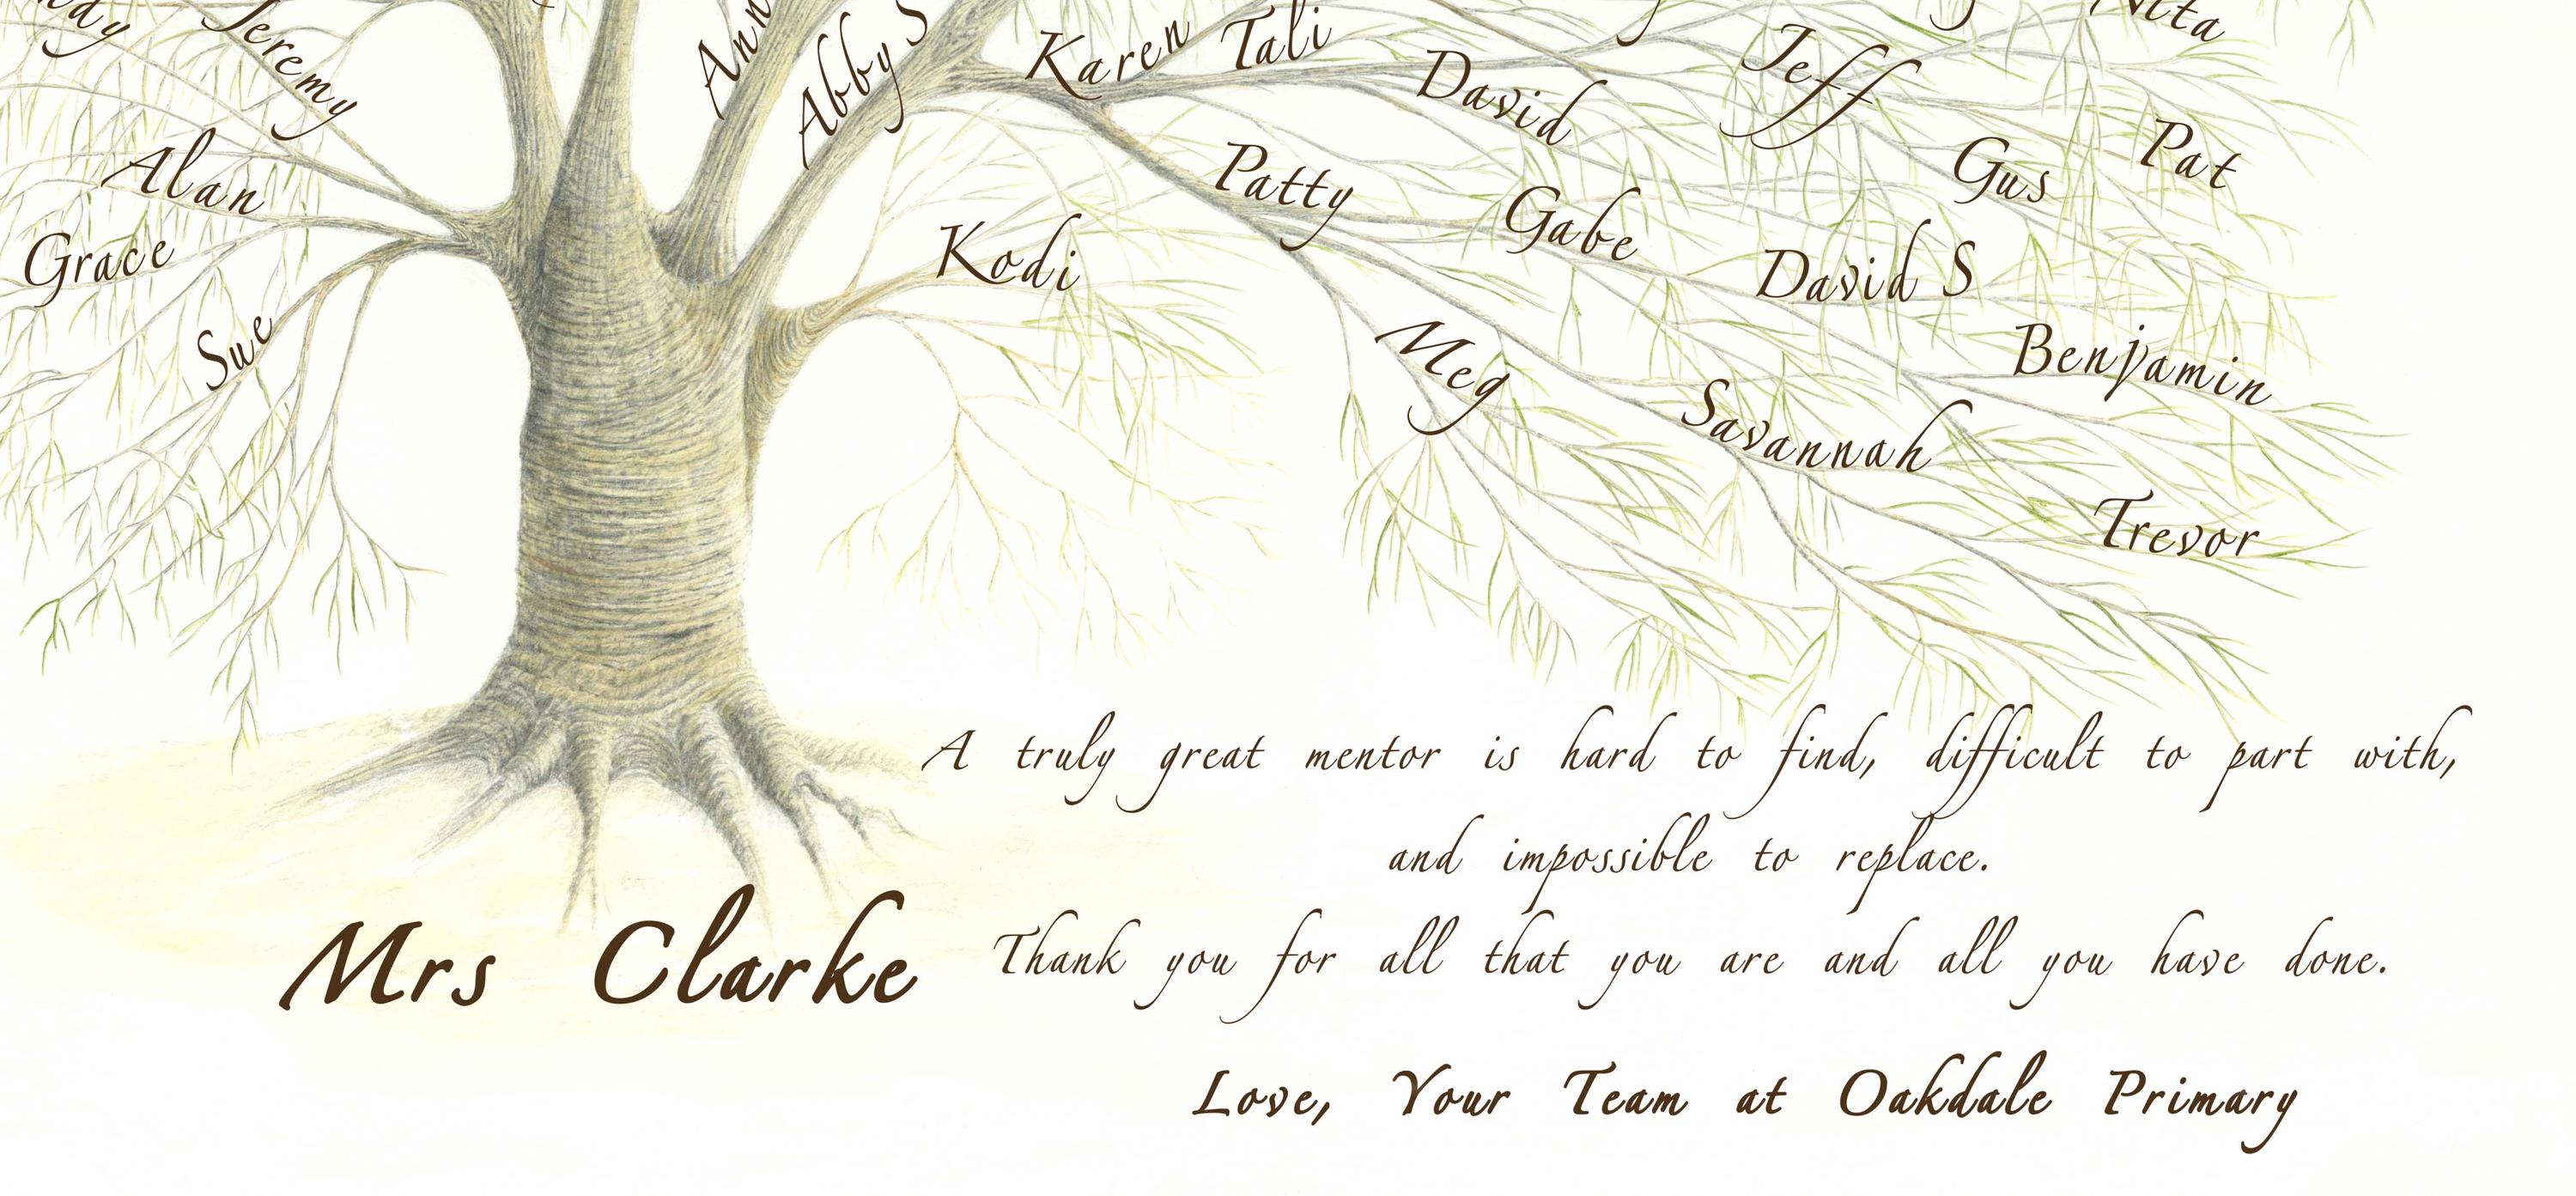 Jeremy
Karen
Tali
Abby S
David
Jeff
Alan
Patty
Gus
Pat
Grace
Kodi
Gabe
David S
Sue
Meg
Benjamin
Savannah
Trevor
A truly great mentor is hard to find, difficult to part with,
and impossible to replace.
Mrs Clarke
Thank you for all that you are and all you have done.
Love, Your Team at Oakdale Primary